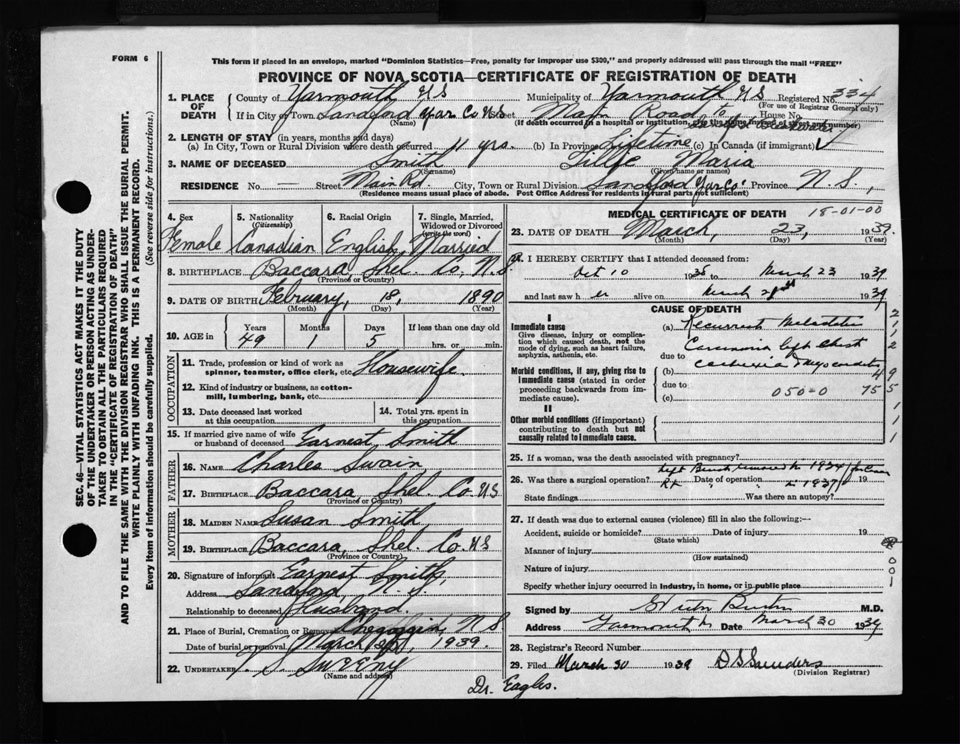 FORM 6
This form if placed in an envelope, marked "Dominion Statistics—Free, penalty for improper use $300," and properly addressed will pass through the mail "FREE"
PROVINCE OF NOVA SCOTIA—CERTIFICATE OF REGISTRATION OF DEATH
1. PLACE OF DEATH County of Yarmouth, N S Municipality of Yarmouth N S Registered No. 334
(For use of Registrar General only)
If in City or Town Sandford Yar Co N S Street Main Road House No.
(Name) (If death occurred in a hospital or institution, give the name instead of street and number)
2. LENGTH OF STAY (in years, months and days)
(a) In City, Town or Rural Division where death occurred 11 yrs. (b) In Province Lifetime (c) In Canada (if immigrant)
3. NAME OF DECEASED Smith Maria
(Surname) (Given name or names)
RESIDENCE No. — Street Main Rd. City, Town or Rural Division Sandford Yar Co. Province N. S.,
(Residence means usual place of abode. Post Office Address for residents in rural parts not sufficient)
4. Sex Female
5. Nationality (Citizenship) Canadian
6. Racial Origin English
7. Single, Married, Widowed or Divorced (write the word) Married
8. BIRTHPLACE Baccara Shel. Co. N. S.
(Province or Country)
9. DATE OF BIRTH February, 18, 1890
(Month) (Day) (Year)
10. AGE in Years 49 Months 1 Days 5 If less than one day old hrs. or min.
OCCUPATION
11. Trade, profession or kind of work as spinner, teamster, office clerk, etc. Housewife
12. Kind of industry or business, as cotton-mill, lumbering, bank, etc.
13. Date deceased last worked at this occupation
14. Total yrs. spent in this occupation
15. If married give name of wife or husband of deceased Earnest Smith
FATHER
16. NAME Charles Swain,
17. BIRTHPLACE Baccara, Shel. Co. N S
(Province or Country)
MOTHER
18. MAIDEN NAME Susan Smith,
19. BIRTHPLACE Baccara, Shel. Co. N S
(Province or Country)
20. Signature of informant Earnest Smith,
Address Sandford, N. S.
Relationship to deceased Husband.
21. Place of Burial, Cremation or Removal Chegoggin, N. S
Date of burial or removal March 1939.
22. UNDERTAKER V. S. Sweeny
(Name and address)
Dr. Eagles.
MEDICAL CERTIFICATE OF DEATH 18-01-00
23. DATE OF DEATH March, 23, 1939.
(Month) (Day) (Year)
24. I HEREBY CERTIFY that I attended deceased from:
Oct 10 1938 to March 23 1939
and last saw her alive on March 1939
CAUSE OF DEATH
I
Immediate cause (a) Recurrent
Give disease, injury or complication which caused death, not the mode of dying, such as heart failure, asphyxia, asthenia, etc.
due to
Morbid conditions, if any, giving rise to immediate cause (stated in order proceeding backwards from immediate cause). (b)
due to
(c) 050-0
II
Other morbid conditions (if important) contributing to death but not causally related to immediate cause.
25. If a woman, was the death associated with pregnancy?
26. Was there a surgical operation? Left Breast removed in 1934 for
Rt Date of operation in 1937
State findings Was there an autopsy?
27. If death was due to external causes (violence) fill in also the following:—
Accident, suicide or homicide? Date of injury 19
(State which)
Manner of injury
(How sustained)
Nature of injury
Specify whether injury occurred in industry, in home, or in public place
Signed by M.D.
Address Yarmouth Date March 30 1939
28. Registrar's Record Number
29. Filed March 30 1939 D S Saunders
(Division Registrar)
SEC. 46—VITAL STATISTICS ACT MAKES IT THE DUTY
OF THE UNDERTAKER OR PERSON ACTING AS UNDER-
TAKER TO OBTAIN ALL THE PARTICULARS REQUIRED
IN THE "CERTIFICATE OF REGISTRATION OF DEATH"
AND TO FILE THE SAME WITH THE DIVISION REGISTRAR WHO SHALL ISSUE THE BURIAL PERMIT.
WRITE PLAINLY WITH UNFADING INK. THIS IS A PERMANENT RECORD.
Every item of information should be carefully supplied. (See reverse side for instructions.)